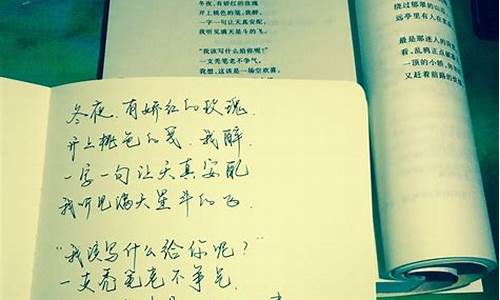 冬夜，有娇红的玫瑰
开上桃色的笺，我醉，
一字一句让天真安配，
我听见满天星斗的飞。
“我该写什么给你呢？”
一支秃笔老不争气，
我想，这该是一场空欢喜。
绕过郁翠的山
远亭里有人在
最是那迷人的
看，乱鸦正点破
一顶的小轿，
又赶着前路的
冬夜，有娇红的玫瑰，
开上桃色的笺，我醉，
一字一句让天真安配
我听见满天星斗的飞
“我该写什么给你呢？”
一支秃笔老不争气，